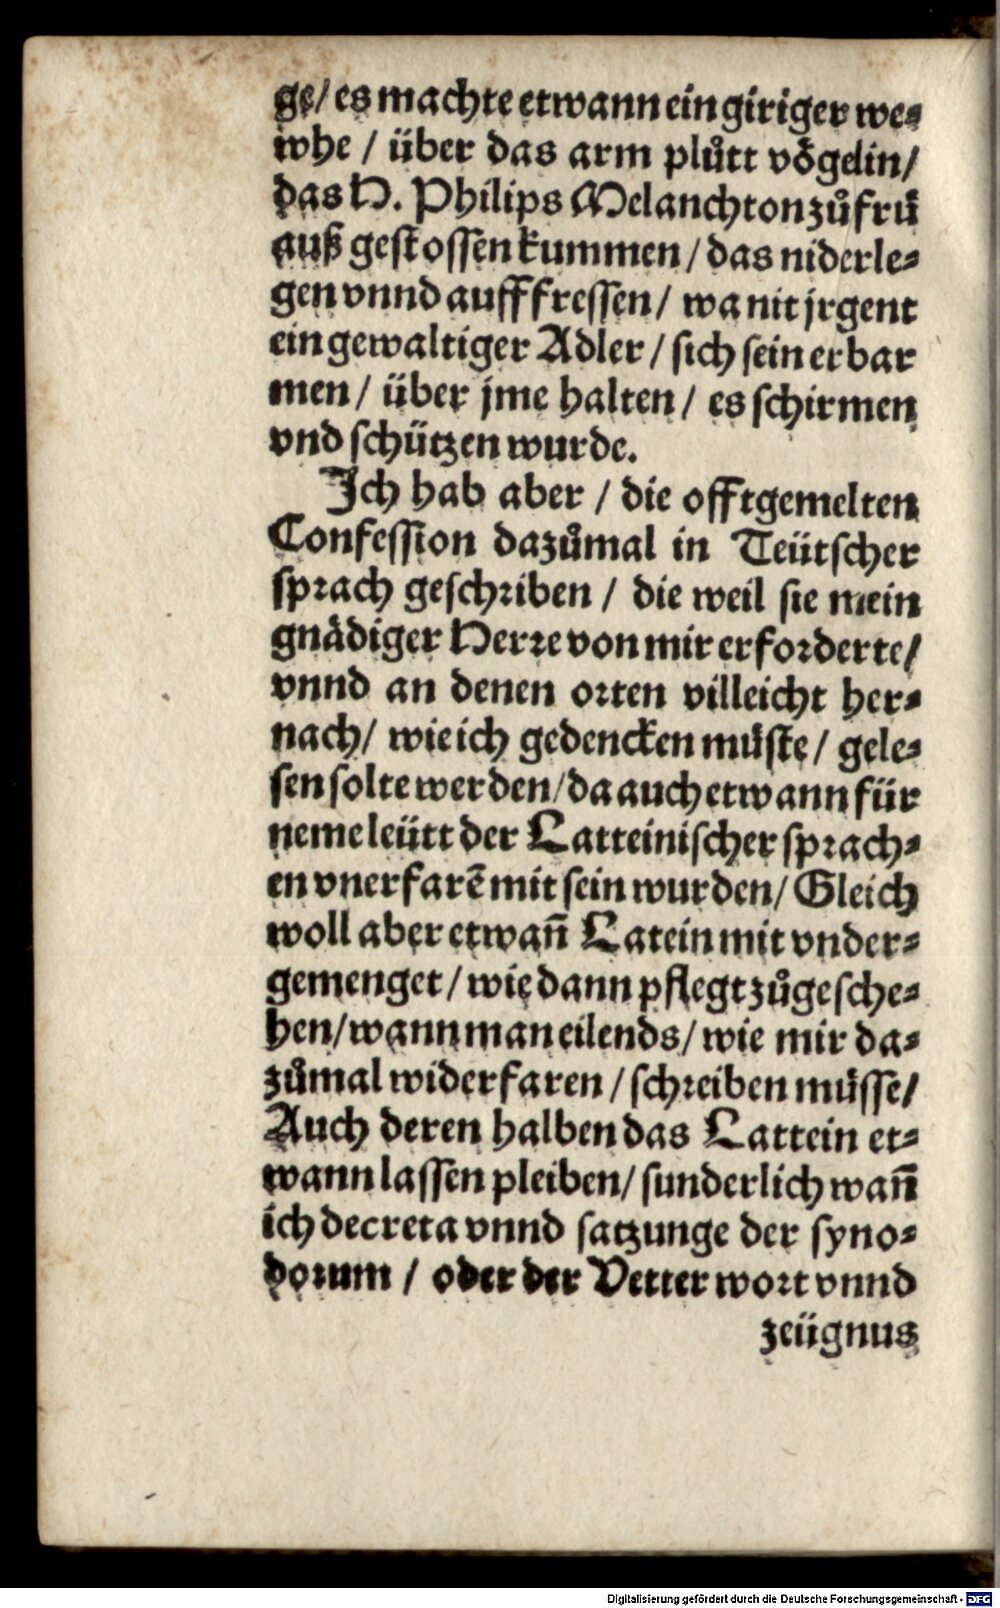 ge/ es machte etwann ein giriger we⸗
whe / über das arm plůtt vögelin/
das H. Philips Melanchton zůfrü
auß gestossen kummen / das niderle⸗
gen vnnd aufffressen / wa nit jrgent
ein gewaltiger Adler / sich sein erbar
men / über jme halten / es schirmen
vnd schützen wurde.
Ich hab aber / die offtgemelten
Confession dazůmal in Teütscher
sprach geschriben / die weil sie mein
gnädiger Herre von mir erforderte/
vnnd an denen orten villeicht her⸗
nach/ wie ich gedencken müste / gele⸗
sen solte werden/ da auch etwann für
neme leütt der Latteinischer sprach⸗
en vnerfarē mit sein wurden/ Gleich
woll aber etwañ Latein mit vnder⸗
gemenget / wie dann pflegt zůgesche⸗
hen/ wann man eilends/ wie mir da⸗
zůmal widerfaren / schreiben müsse/
Auch deren halben das Lattein et⸗
wann lassen pleiben/ sunderlich wañ
ich decreta vnnd satzunge der syno⸗
dorum / oder der Vetter wort vnnd
zeügnus
Digitalisierung gefördert durch die Deutsche Forschungsgemeinschaft - DFG